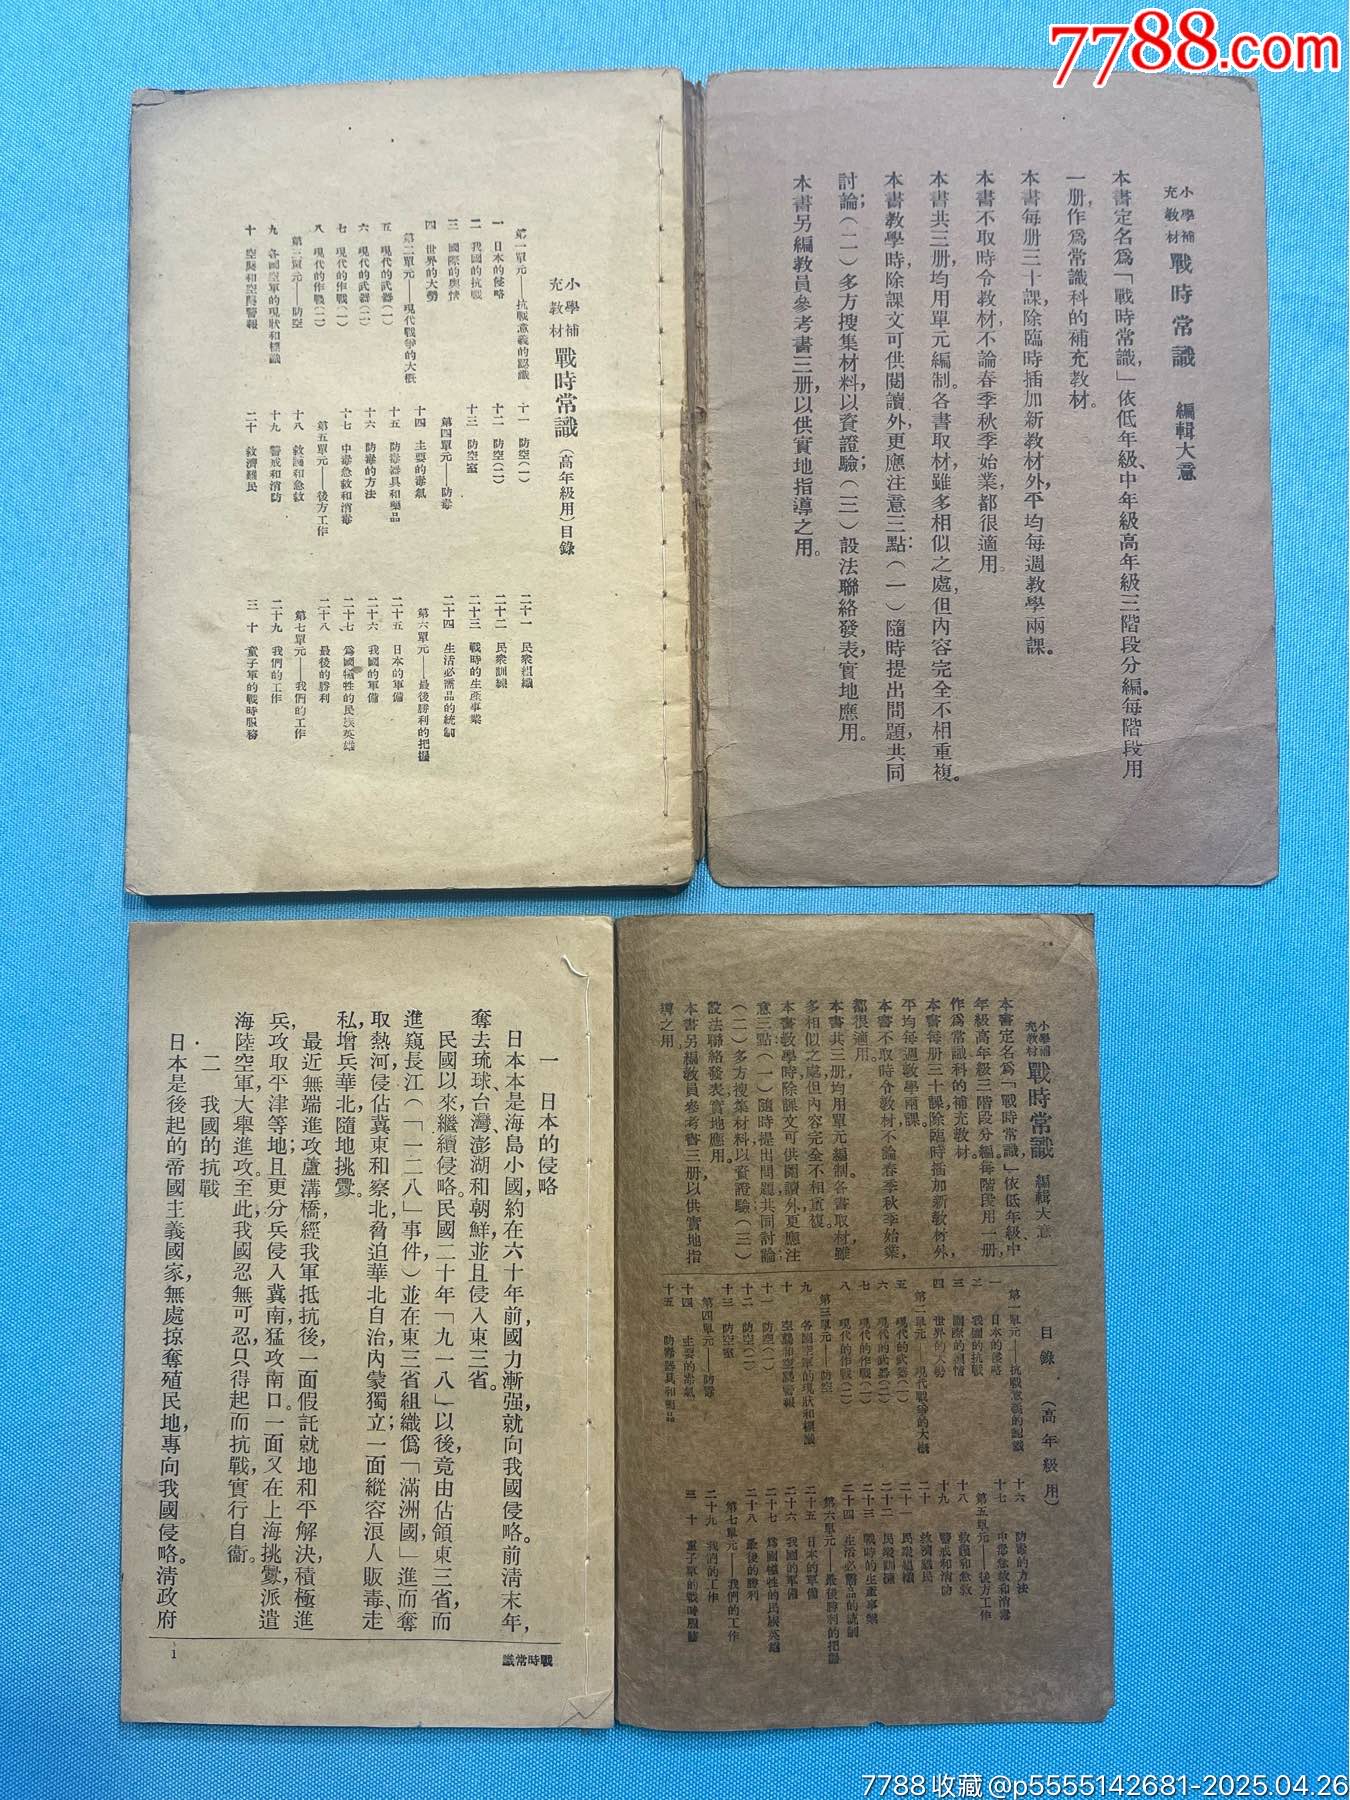 7788.com
小學補
充教材
戰時常識　編輯大意
本書定名爲「戰時常識」，依低年級、中年級高年級三階段分編。每階段用
一册，作爲常識科的補充教材。
本書每册三十課，除臨時插加新教材外，平均每週教學兩課。
本書不取時令教材，不論春季秋季始業，都很適用。
本書共三册，均用單元編制。各書取材，雖多相似之處，但內容完全不相重複。
本書教學時，除課文可供閱讀外，更應注意三點：（一）隨時提出問題，共同
討論；（二）多方搜集材料，以資證驗；（三）設法聯絡發表，實地應用。
本書另編教員參考書三册，以供實地指導之用。
小學補
充教材
戰時常識（高年級用）目錄
第一單元——抗戰意義的認識
一　日本的侵略
二　我國的抗戰
三　國際的輿情
四　世界的大勢
第二單元——現代戰爭的大概
五　現代的武器（一）
六　現代的武器（二）
七　現代的作戰（一）
八　現代的作戰（二）
第三單元——防空
九　各國空軍的現狀和標識
十　空襲和空襲警報
十一　防空（一）
十二　防空（二）
十三　防空室
第四單元——防毒
十四　主要的毒氣
十五　防毒器具和藥品
十六　防毒的方法
十七　中毒急救和消毒
第五單元——後方工作
十八　救護和急救
十九　警戒和消防
二十　救濟難民
二十一　民衆組織
二十二　民衆訓練
二十三　戰時的生產事業
二十四　生活必需品的統制
第六單元——最後勝利的把握
二十五　日本的軍備
二十六　我國的軍備
二十七　爲國犧牲的民族英雄
二十八　最後的勝利
第七單元——我們的工作
二十九　我們的工作
三十　童子軍的戰時服務
小學補
充教材
戰時常識　編輯大意
本書定名爲「戰時常識」，依低年級、中
年級高年級三階段分編。每階段用一册，
作爲常識科的補充教材。
本書每册三十課，除臨時插加新教材外，
平均每週教學兩課。
本書不取時令教材，不論春季秋季始業，
都很適用。
本書共三册，均用單元編制。各書取材，雖
多相似之處，但內容完全不相重複。
本書教學時，除課文可供閱讀外，更應注
意三點：（一）隨時提出問題，共同討論；
（二）多方搜集材料，以資證驗；（三）
設法聯絡發表，實地應用。
本書另編教員參考書三册，以供實地指
導之用。
目錄（高年級用）
第一單元——抗戰意義的認識
一　日本的侵略
二　我國的抗戰
三　國際的輿情
四　世界的大勢
第二單元——現代戰爭的大概
五　現代的武器（一）
六　現代的武器（二）
七　現代的作戰（一）
八　現代的作戰（二）
第三單元——防空
九　各國空軍的現狀和標識
十　空襲和空襲警報
十一　防空（一）
十二　防空（二）
十三　防空室
第四單元——防毒
十四　主要的毒氣
十五　防毒器具和藥品
十六　防毒的方法
十七　中毒急救和消毒
第五單元——後方工作
十八　救護和急救
十九　警戒和消防
二十　救濟難民
二十一　民衆組織
二十二　民衆訓練
二十三　戰時的生產事業
二十四　生活必需品的統制
第六單元——最後勝利的把握
二十五　日本的軍備
二十六　我國的軍備
二十七　爲國犧牲的民族英雄
二十八　最後的勝利
第七單元——我們的工作
二十九　我們的工作
三十　童子軍的戰時服務
一　日本的侵略
日本本是海島小國，約在六十年前，國力漸强，就向我國侵略。前淸末年，
奪去琉球、台灣、澎湖和朝鮮，並且侵入東三省。
民國以來，繼續侵略。民國二十年「九一八」以後，竟由佔領東三省，而
進窺長江（「一二八」事件），並在東三省組織僞「滿洲國」，進而奪
取熱河，侵佔冀東和察北，脅迫華北自治，內蒙獨立；一面縱容浪人販毒、走
私，增兵華北，隨地挑釁。
最近無端進攻蘆溝橋，經我軍抵抗後，一面假託就地和平解決，積極進
兵，攻取平津等地；且更分兵侵入冀南，猛攻南口。一面又在上海挑釁，派遣
海陸空軍，大舉進攻。至此，我國忍無可忍，只得起而抗戰，實行自衞。
二　我國的抗戰
日本是後起的帝國主義國家，無處掠奪殖民地，專向我國侵略。淸政府
戰時常識
1
7788收藏@p5555142681-2025.04.26